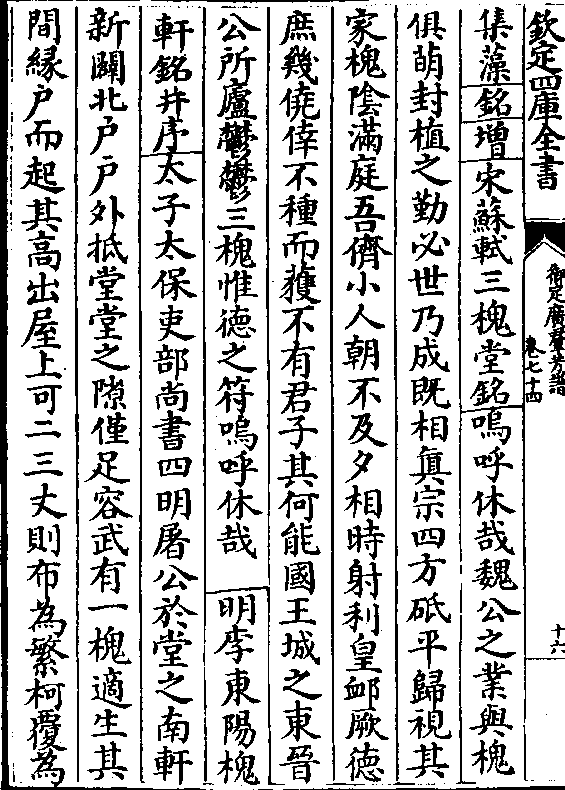 欽定四庫全書
御定廣羣芳譜
卷七十四
十六
集藻銘增宋蘇軾三槐堂銘嗚呼休哉魏公之業與槐
俱萌封植之勤必世乃成既相真宗四方砥平歸視其
家槐陰滿庭吾儕小人朝不及夕相時射利皇卹厥德
庶幾僥倖不種而穫不有君子其何能國王城之東晉
公所廬鬱鬱三槐惟德之符嗚呼休哉 明李東陽槐
軒銘并序太子太保吏部尚書四明屠公於堂之南軒
新闢北戶戶外抵堂堂之隙僅足容武有一槐適生其
間緣戶而起其高出屋上可二三丈則布為繁柯覆為